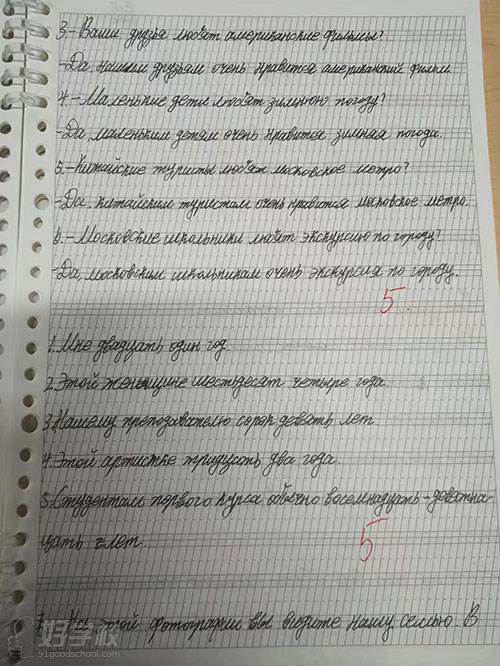 3.-Ваши друзья любят американские фильмы?
-Да, нашим друзьям очень нравится американский фильм.
4.-Маленькие дети любят зимнюю погоду?
-Да, маленьким детям очень нравится зимная погода.
5.-Китайские туристы любят московское метро?
-Да, китайским туристам очень нравится московское метро.
6.-Московские школьники любят экскурсию по городу?
-Да, московским школьникам очень экскурсия по городу.
5.
1. Мне двадцать один год.
2. Этой женщине шестьдесят четыре года.
3. Нашему преподавателю сорок девять лет
4. Этой артистке тридцать два года.
5. Студентам первого курса обычно восемнадцать-девятна-
цать лет.
5
На этой фотографии вы видите нашу семью. В
好学校
91goodschool.com